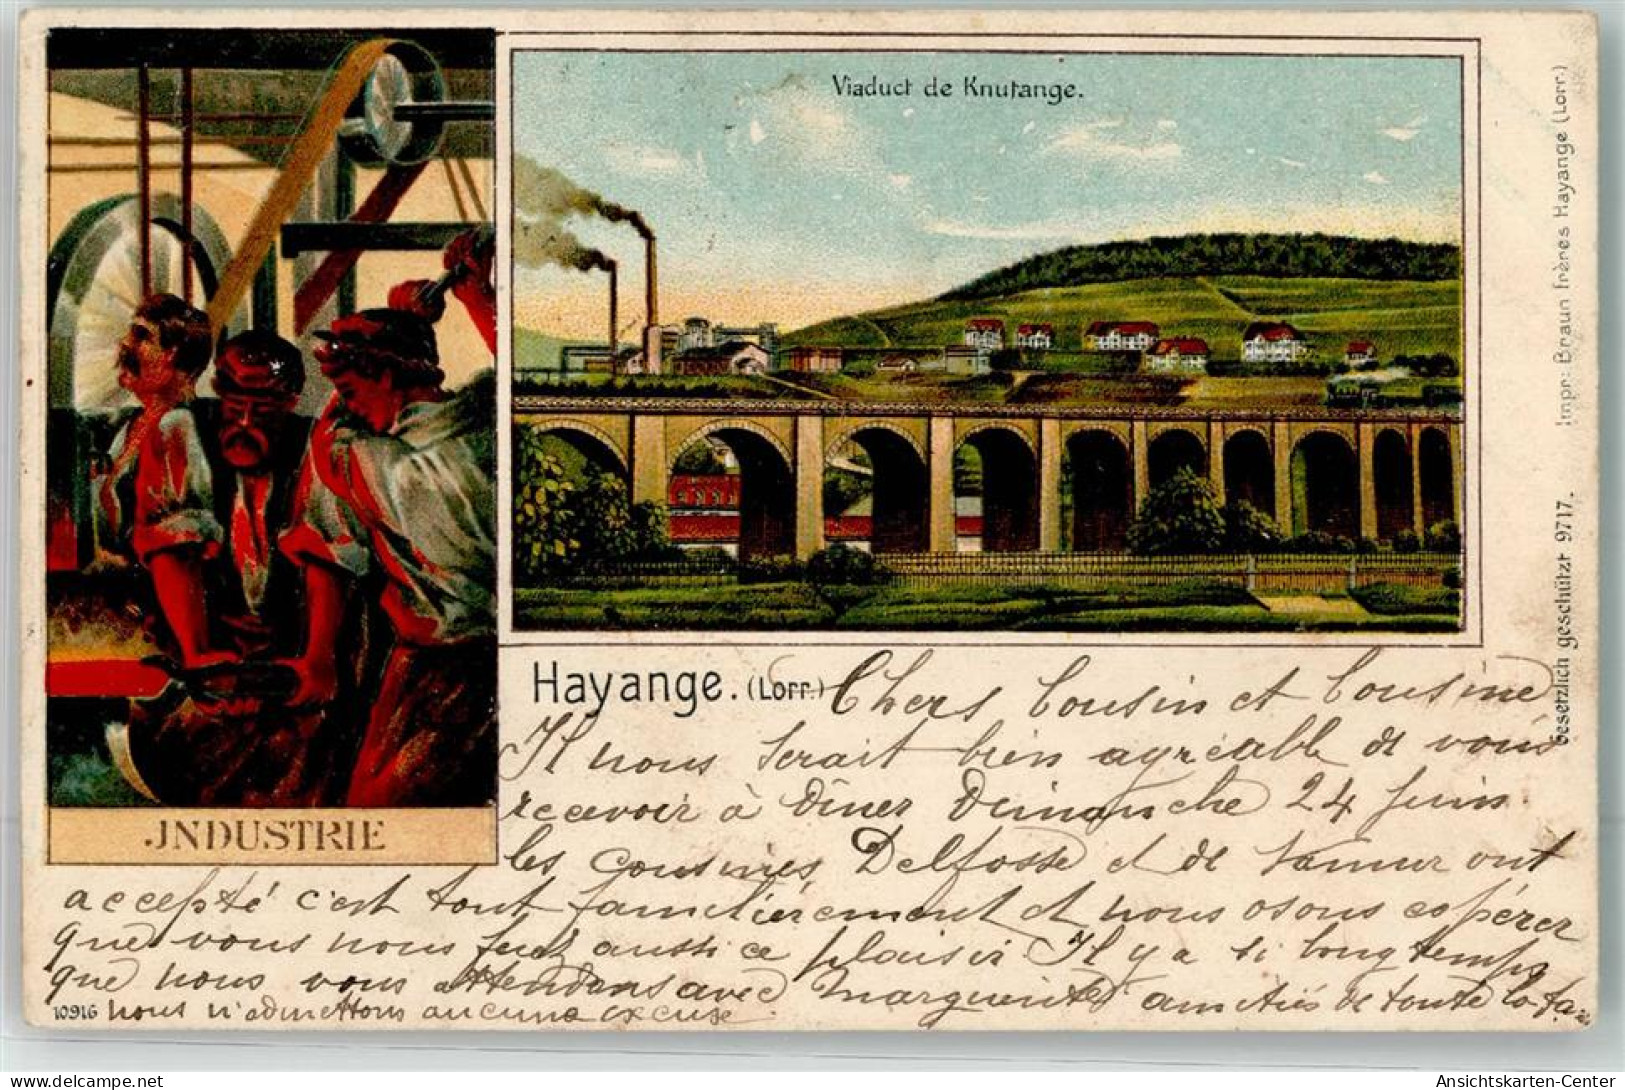 Viaduct de Knutange.
JNDUSTRIE
Hayange. (Lorr.)
Chers Cousin et Cousine
Il nous serait bien agréable de vous
recevoir à dîner Dimanche 24 Juin.
les cousines Delfosse et de Namur ont
accepté c'est tout familièrement et nous osons espérer
que vous nous ferez aussi ce plaisir Il y a si longtemps
que nous vous attendons avec Marguerite amitiés de toute la fa
10916 nous n'admettons aucune excuse.
Impr: Braun frères Hayange (Lorr.)
Gesetzlich geschützt 9717.
Ansichtskarten-Center